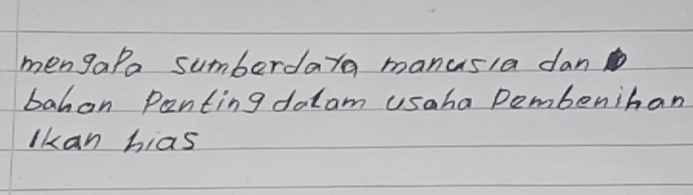 mengapa sumberdaya manusia dan
bahan Penting dalam usaha Pembenihan
Ikan hias